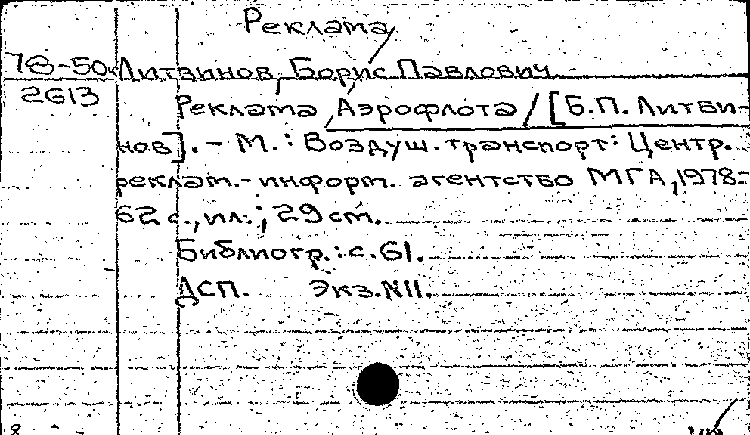 Реклама
78-50
Литвинов, Борис Павлович
2613
Реклама Аэрофлота / [Б.П. Литви-
нов]. - М. : Воздуш. транспорт: Центр.
реклам.-информ. агентство МГА, 1978.-
62 с., ил.; 29 см.
Библиогр.: с. 61.
ДСП. Экз.N11.